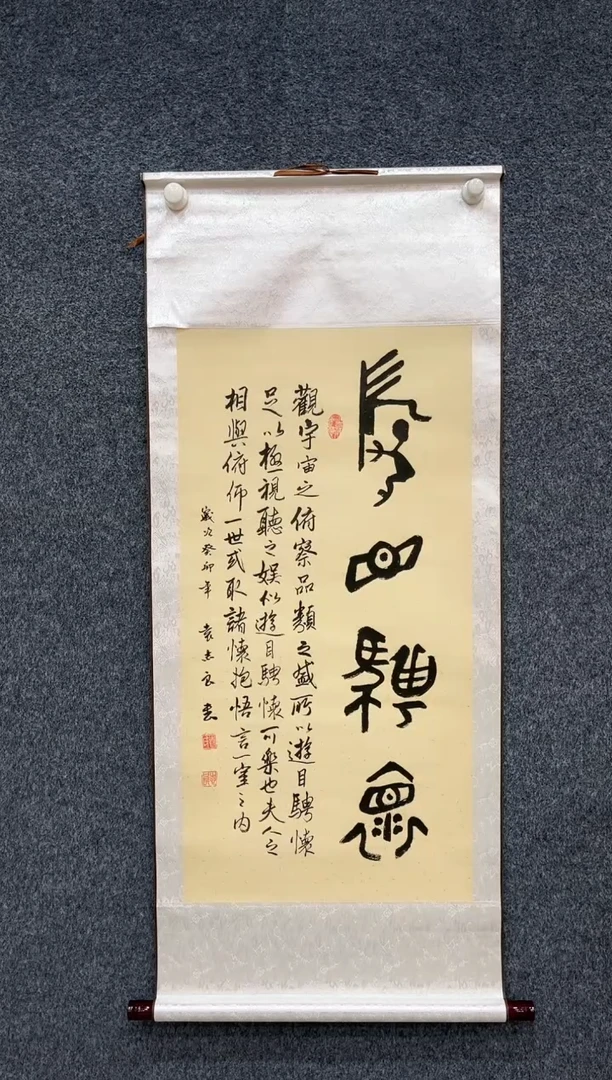 遊目騁懷
觀宇宙之俯察品類之盛所以遊目騁懷
足以極視聽之娛似遊目騁懷可樂也夫人之
相與俯仰一世或取諸懷抱悟言一室之內
歲次癸卯年 袁志良書